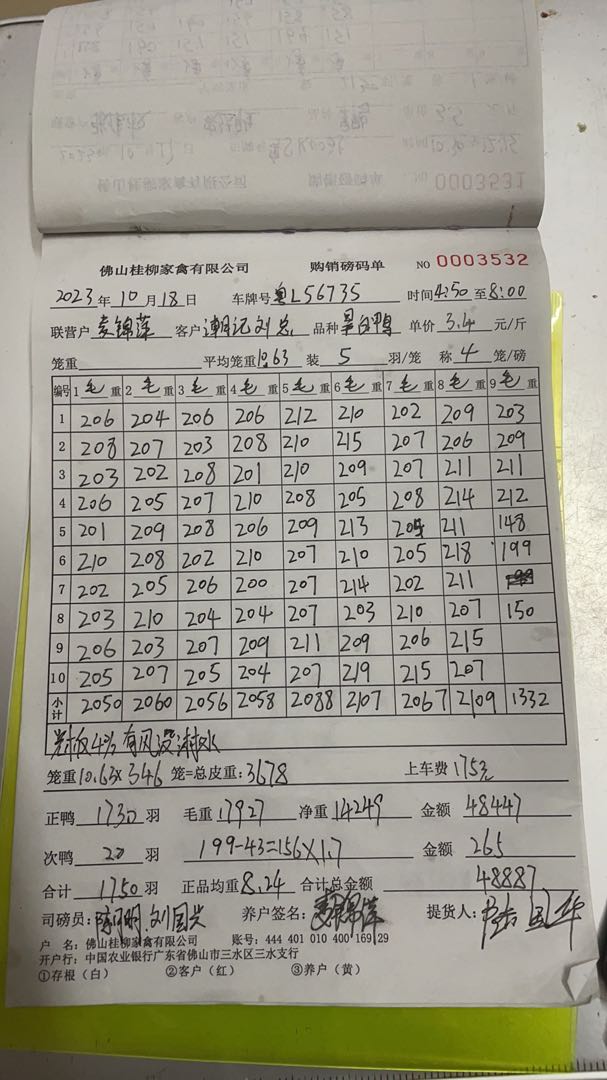 佛山桂柳家禽有限公司 购销磅码单 NO 0003532
2023年10月18日 车牌号 粤L56735 时间4:50至8:00
联营户 麦锦莲 客户 潮记刘总 品种 白鸭 单价 3.4 元/斤
笼重 平均笼重10.63 装 5 羽/笼 称 4 笼/磅
编号 1毛重 2毛重 3毛重 4毛重 5毛重 6毛重 7毛重 8毛重 9毛重
1 206 204 206 206 212 210 202 209 203
2 208 207 203 208 210 215 207 206 209
3 203 202 208 201 210 209 207 211 211
4 206 205 207 210 208 205 208 214 212
5 201 209 208 206 209 213 205 211 148
6 210 208 202 210 207 210 205 218 199
7 202 205 206 200 207 214 202 211
8 203 210 204 204 207 203 210 207 150
9 206 203 207 209 211 209 206 215
10 205 207 205 204 207 219 215 207
小计 2050 2060 2056 2058 2088 2107 2067 2109 1332
4% 有风没淋水
笼重10.63×346 笼=总皮重:3678 上车费175元
正鸭 1730 羽 毛重:17927 净重14249 金额 48447
次鸭 20 羽 199-43=156×1.7 金额 265
合计 1750 羽 正品均重8.24 合计总金额 48887
司磅员: 刘国兴 养户签名: 麦锦莲 提货人:
户 名:佛山桂柳家禽有限公司 账号:444 401 010 400 169 29
开户行:中国农业银行广东省佛山市三水区三水支行
①存根(白) ②客户(红) ③养户(黄)